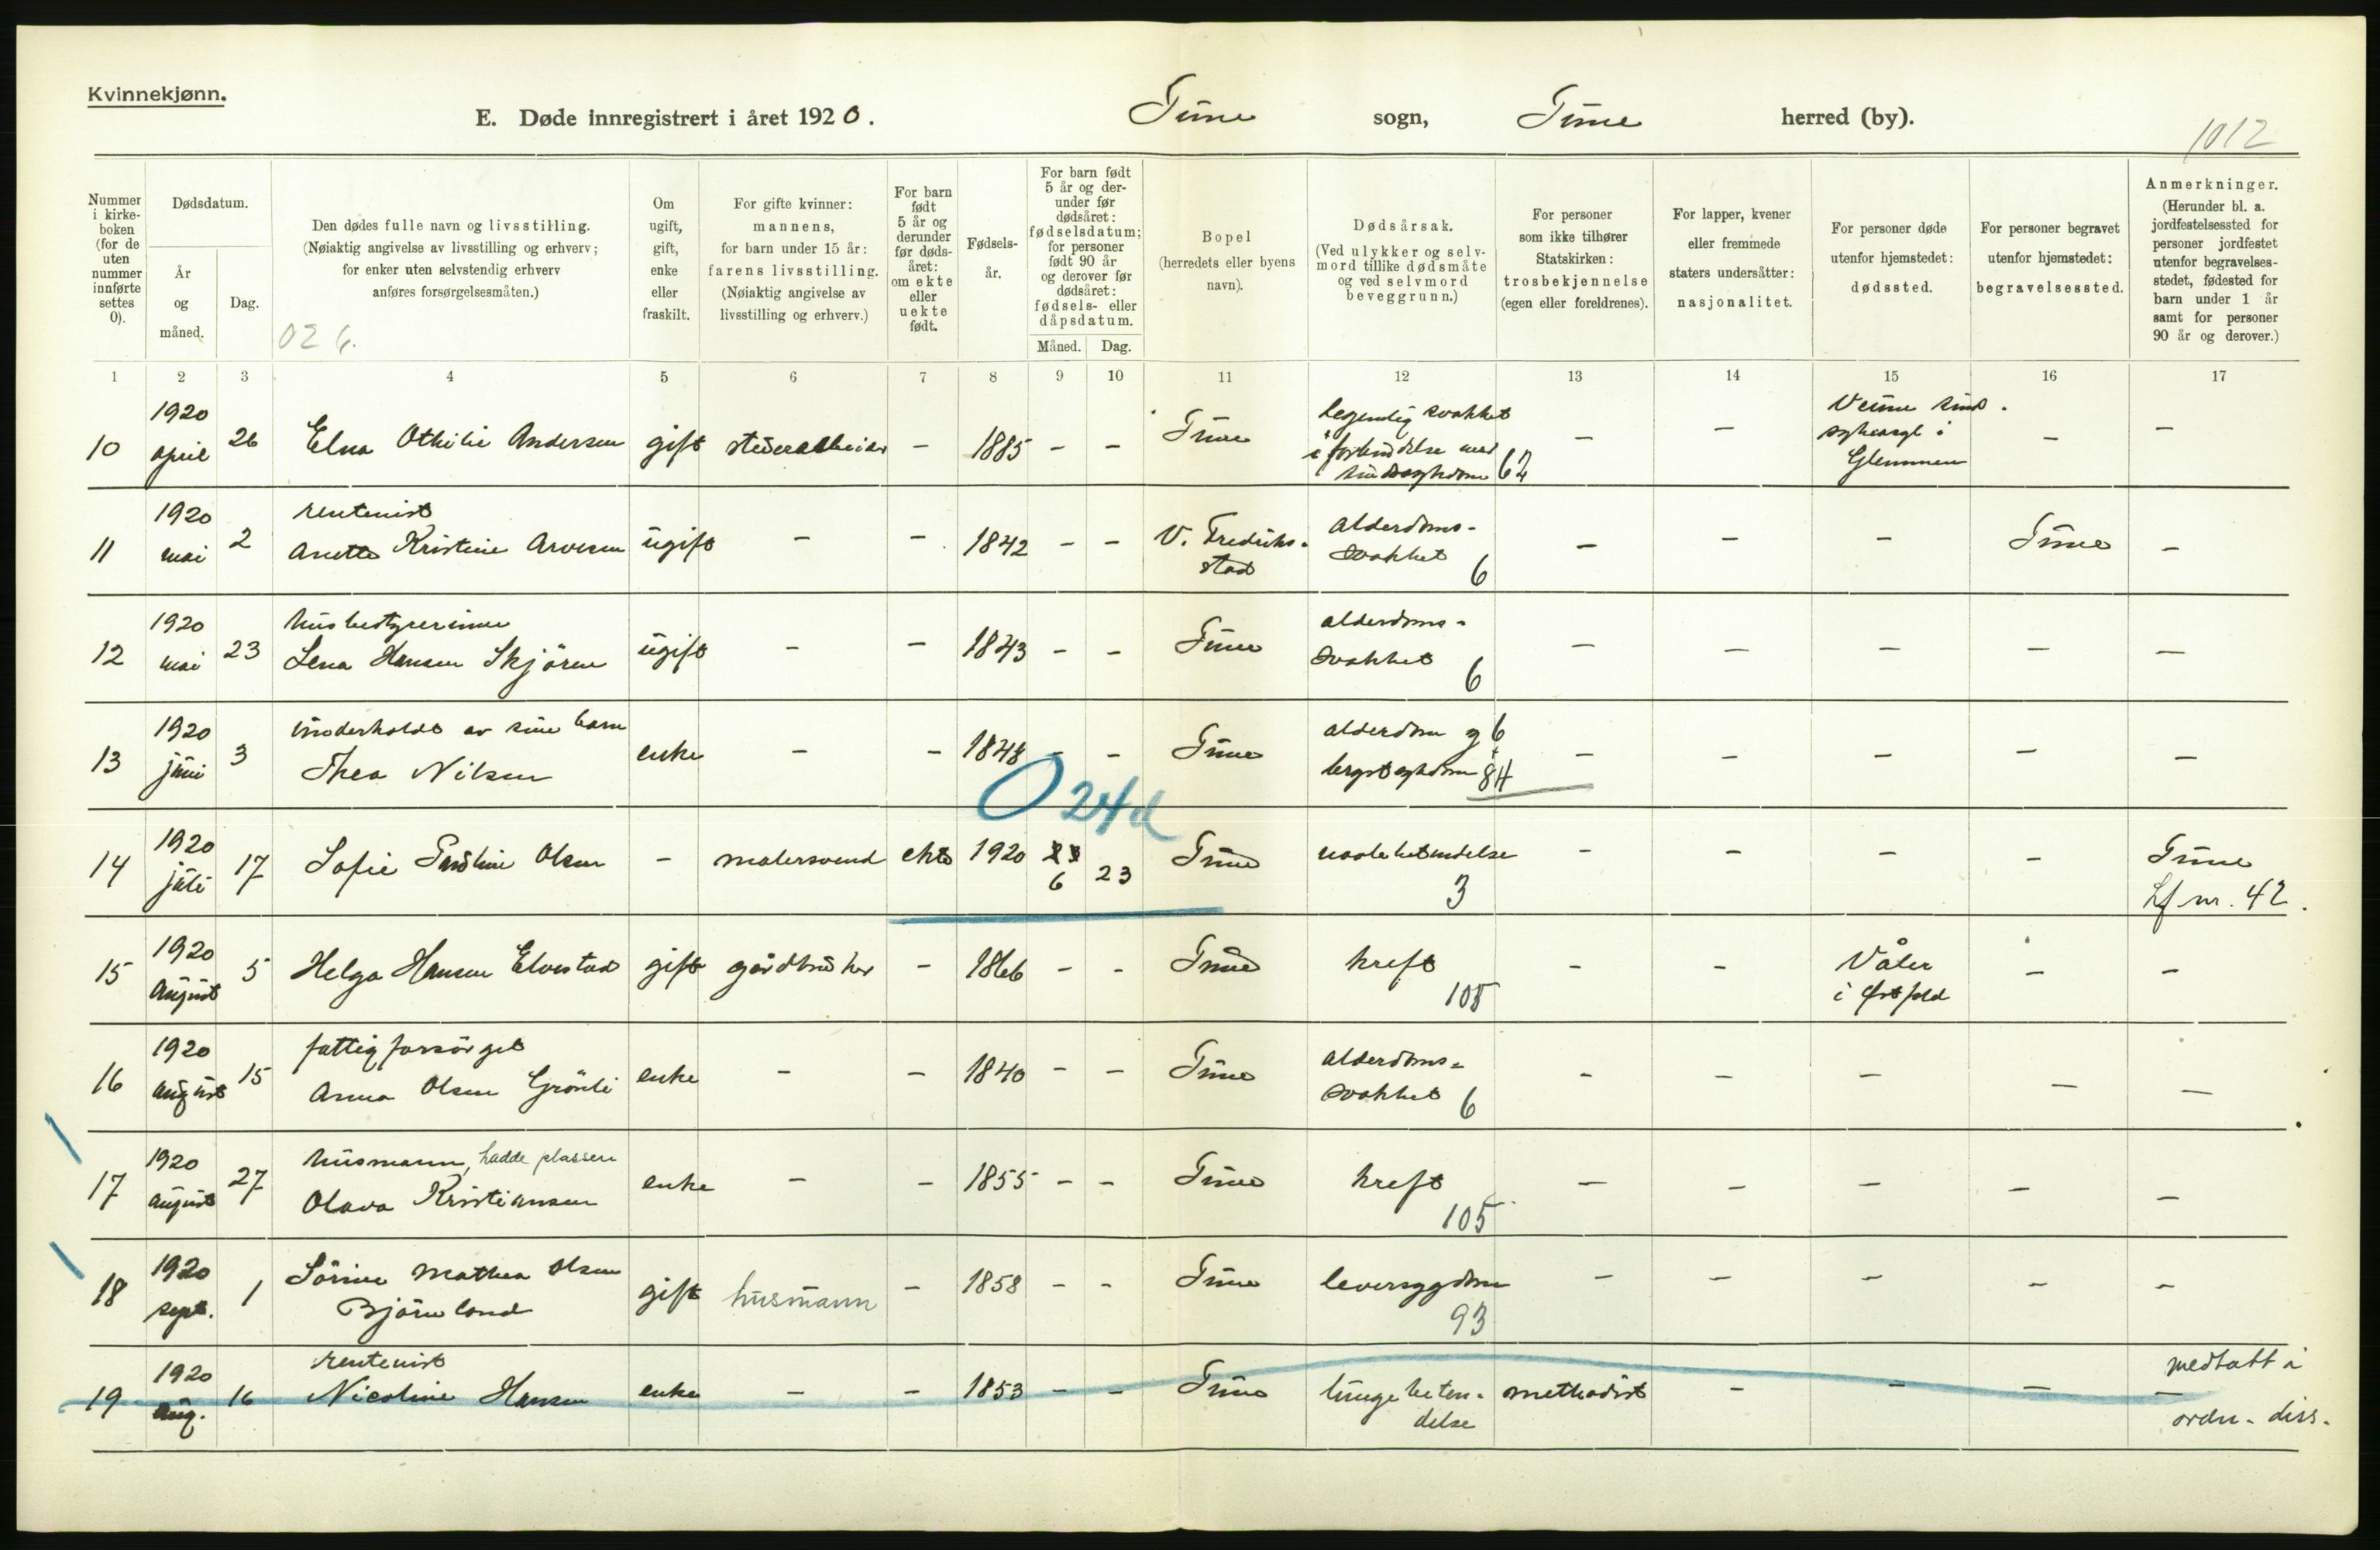 Kvinnekjønn.
E. Døde innregistrert i året 1920. Tune sogn, Tune herred (by).
1012
Nummer i kirke- boken (for de uten nummer innførte settes 0).
Dødsdatum.
År og måned.
Dag.
Den dødes fulle navn og livsstilling. (Nøiaktig angivelse av livsstilling og erhverv; for enker uten selvstendig erhverv anføres forsørgelsesmåten.)
026.
Om ugift, gift, enke eller fraskilt.
For gifte kvinner: mannens, for barn under 15 år: farens livsstilling. (Nøiaktig angivelse av livsstilling og erhverv.)
For barn født 5 år og derunder før døds- året: om ekte eller uekte født.
Fødsels- år.
For barn født 5 år og der- under før dødsåret: fødselsdatum; for personer født 90 år og derover før dødsåret: fødsels- eller dåpsdatum.
Måned. Dag.
Bopel (herredets eller byens navn).
Dødsårsak. (Ved ulykker og selv- mord tillike dødsmåte og ved selvmord beveggrunn.)
For personer som ikke tilhører Statskirken: trosbekjennelse (egen eller foreldrenes).
For lapper, kvener eller fremmede staters undersåtter: nasjonalitet.
For personer døde utenfor hjemstedet: dødssted.
For personer begravet utenfor hjemstedet: begravelsessted.
Anmerkninger. (Herunder bl. a. jordfestelsessted for personer jordfestet utenfor begravelses- stedet, fødested for barn under 1 år samt for personer 90 år og derover.)
1 2 3 4 5 6 7 8 9 10 11 12 13 14 15 16 17
10 1920 april 26 Elna Othilie Andersen gift - 1885 - - Tune legemlig svakhet i forbindelse med sindssygdom 62 - - Veum sinds sykeasyl i Glemmen - -
11 1920 mai 2 rentenist Anette Kristine Arvesen ugift - - 1842 - - V. Fredrik- stad alderdoms- svakhet 6 - - - Tune -
12 1920 mai 23 husbestyrerinne Lena Hansen Skjören ugift - - 1843 - - Tune alderdoms- svakhet 6 - - - - -
13 1920 juni 3 underholdt av sine barn Thea Nilsen enke - - 1848 - - Tune alderdom og 6 brystsykdom 84 - - - - -
O 24d
14 1920 juli 17 Sofie Pauline Olsen - malersvend ekte 1920 6 23 Tune 3 - - - - Tune Lf nr. 42.
15 1920 august 5 Helga Hansen Elvestad gift gårdbruker - 1866 - - Tune kreft 105 - - Våler i Østfold - -
16 1920 august 15 fattigforsörget Anna Olsen Grönli enke - - 1840 - - Tune alderdoms- svakhet 6 - - - - -
17 1920 august 27 husmann, hadde plassen Olava Kristiansen enke - - 1855 - - Tune kreft 105 - - - - -
18 1920 sept. 1 Sörine Mathea Olsen Björneland gift husmann - 1858 - - Tune leversygdom 93 - - - - -
19 1920 aug. 16 rentenist Nicoline Hansen enke - - 1853 - - Tune lungebeten- delse methodist - - - - medtatt i ordn. diss.